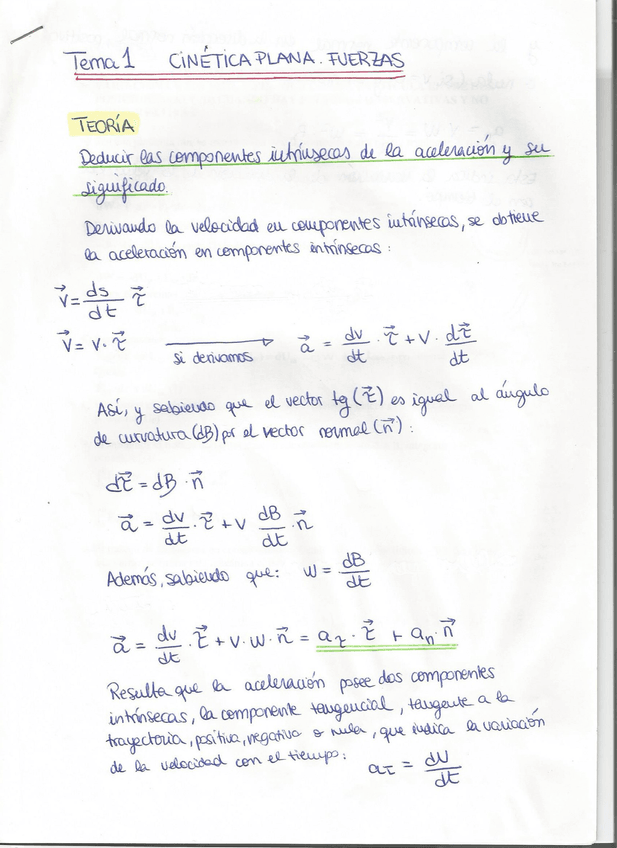 Tema 1 CINÉTICA PLANA. FUERZAS
TEORÍA
Deducir las componentes intrínsecas de la aceleración y su
significado.
Derivando la velocidad en componentes intrínsecas, se obtiene
la aceleración en componentes intrínsecas:
v⃗ = ds/dt τ⃗
v⃗ = v · τ⃗ → si derivamos a⃗ = dv/dt · τ⃗ + v · dτ⃗/dt
Así, y sabiendo que el vector tg (τ⃗) es igual al ángulo
de curvatura (dB) por el vector normal (n⃗):
dτ⃗ = dB · n⃗
a⃗ = dv/dt · τ⃗ + v dB/dt · n⃗
Además, sabiendo que: w = dB/dt
a⃗ = dv/dt · τ⃗ + v · w · n⃗ = aτ · τ⃗ + an · n⃗
Resulta que la aceleración posee dos componentes
intrínsecas, la componente tangencial, tangente a la
trayectoria, positiva, negativa o nula, que indica la variación
de la velocidad con el tiempo: aτ = dv/dt